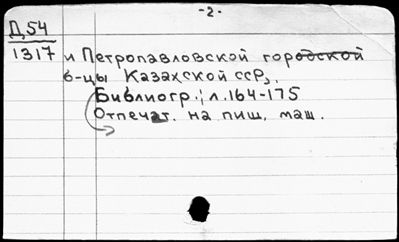 -2-
Д54
1317 и Петропавловской городской
б-цы Казахской ССР,
Библиогр.: л.164-175
Отпечат. на пиш. маш.